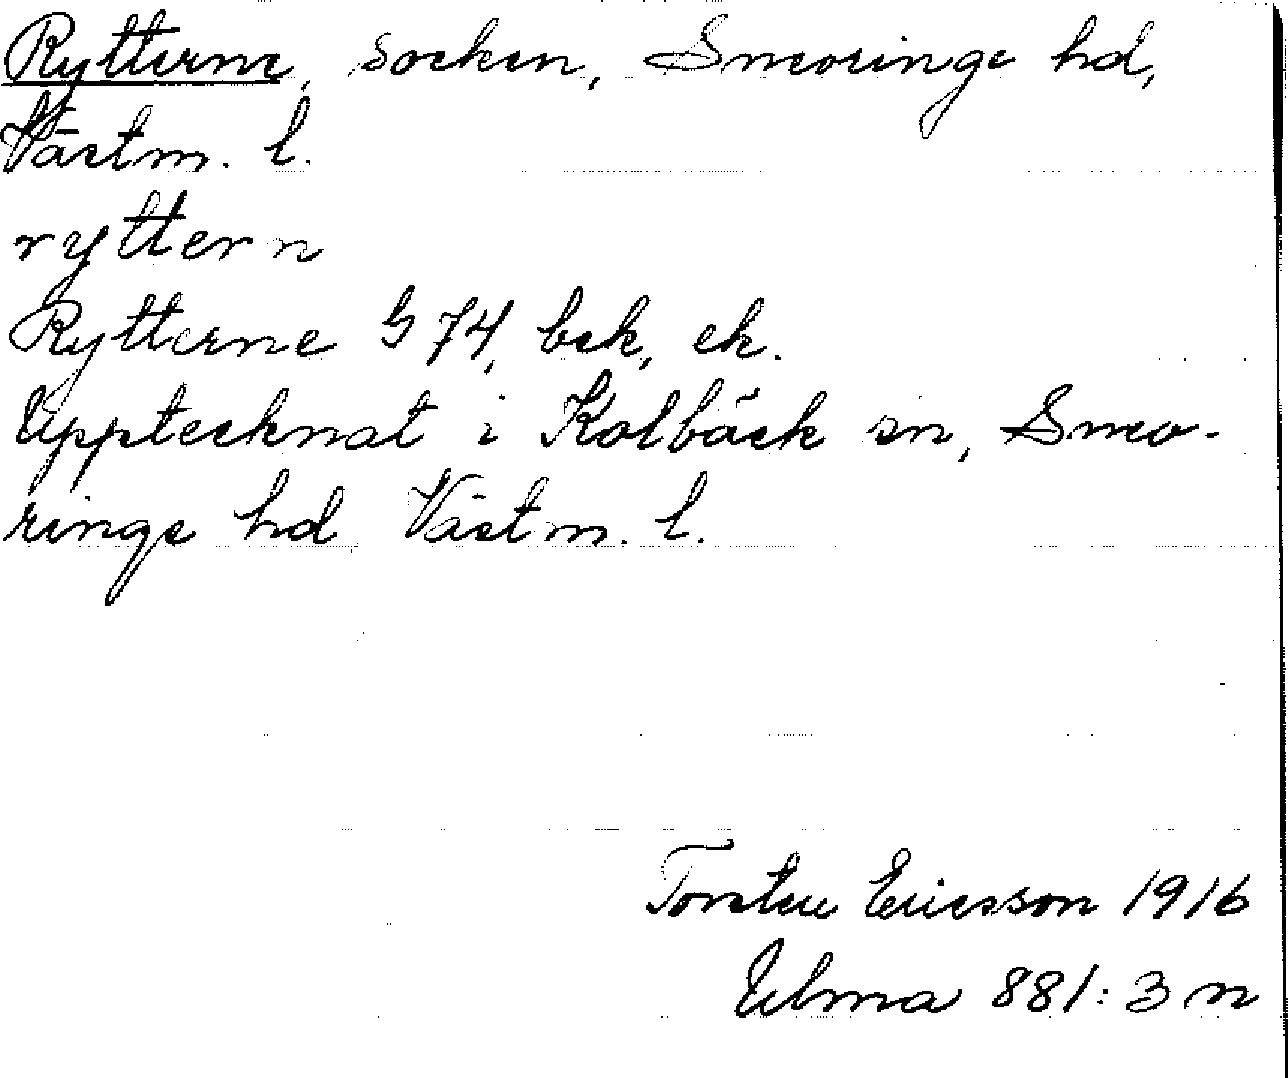 Rytterne, socken, Snevringe hd,
Västm. l.
ryttern
Rytterne G 74, bek, ek.
Upptecknat i Kolbäck sn, Snev-
ringe hd Västm. l.
Torsten Ericsson 1916
Ulma 881:3 m